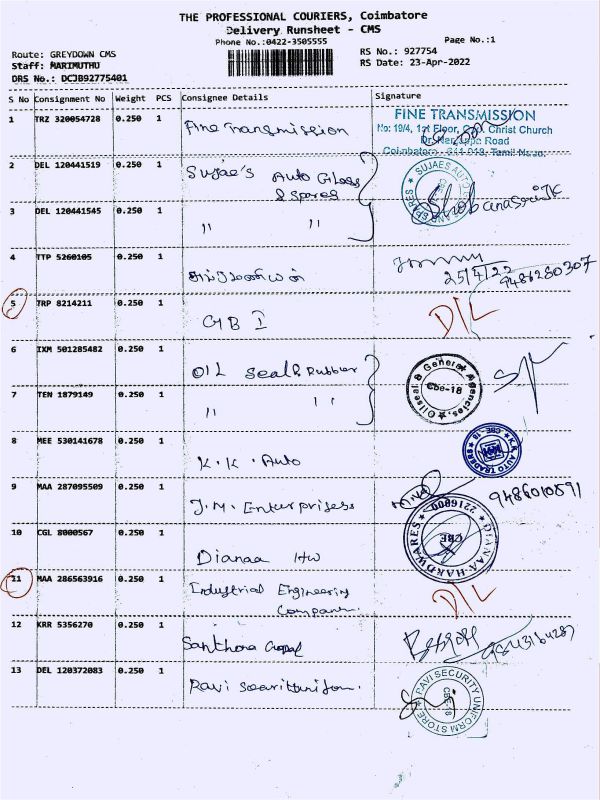 THE PROFESSIONAL COURIERS, Coimbatore
Delivery Runsheet - CMS
Phone No.:0422-3505555
Page No.:1
Route: GREYDOWN CMS
Staff: MARIMUTHU
DRS No.: DCJB92775401
RS No.: 927754
RS Date: 23-Apr-2022
S No Consignment No Weight PCS Consignee Details Signature
1 TRZ 320054728 0.250 1 Fine Transmission
FINE TRANSMISSION
No: 19/4, 1st Floor, Christ Church
Road
Coimbatore - 641 018, Tamil Nadu.
2 DEL 120441519 0.250 1 Sujae's Auto Glass
& Spares
SUJAES AUTO AND SPARES
3 DEL 120441545 0.250 1 " "
4 TTP 5260105 0.250 1
25/4/22
9486280307
5 TRP 8214211 0.250 1 GBI D/L
6 IXM 501285482 0.250 1 Oil Seal & Rubber
Oilseal & General Agencies, Cbe-18
7 TEN 1879149 0.250 1 " "
8 MEE 530141678 0.250 1 K.K. Auto
K.K. AUTO TRADERS CBE-18
9 MAA 287095509 0.250 1 J.M. Enterprises
9486010591
10 CGL 8000567 0.250 1 Dianaa HW
DIANAA HARDWARES 2216000 CBE
11 MAA 286563916 0.250 1 Industrial Engineering
Company. D/L
12 KRR 5356270 0.250 1 Santhona Gopal
13 DEL 120372083 0.250 1 Ravi
RAVI SECURITY UNIFORM STORE CBE-18